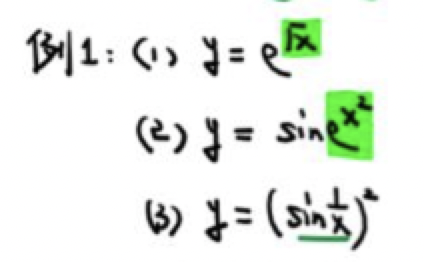 例1：(1) y = e^√x
(2) y = sin e^x²
(3) y = (sin 1/x)²